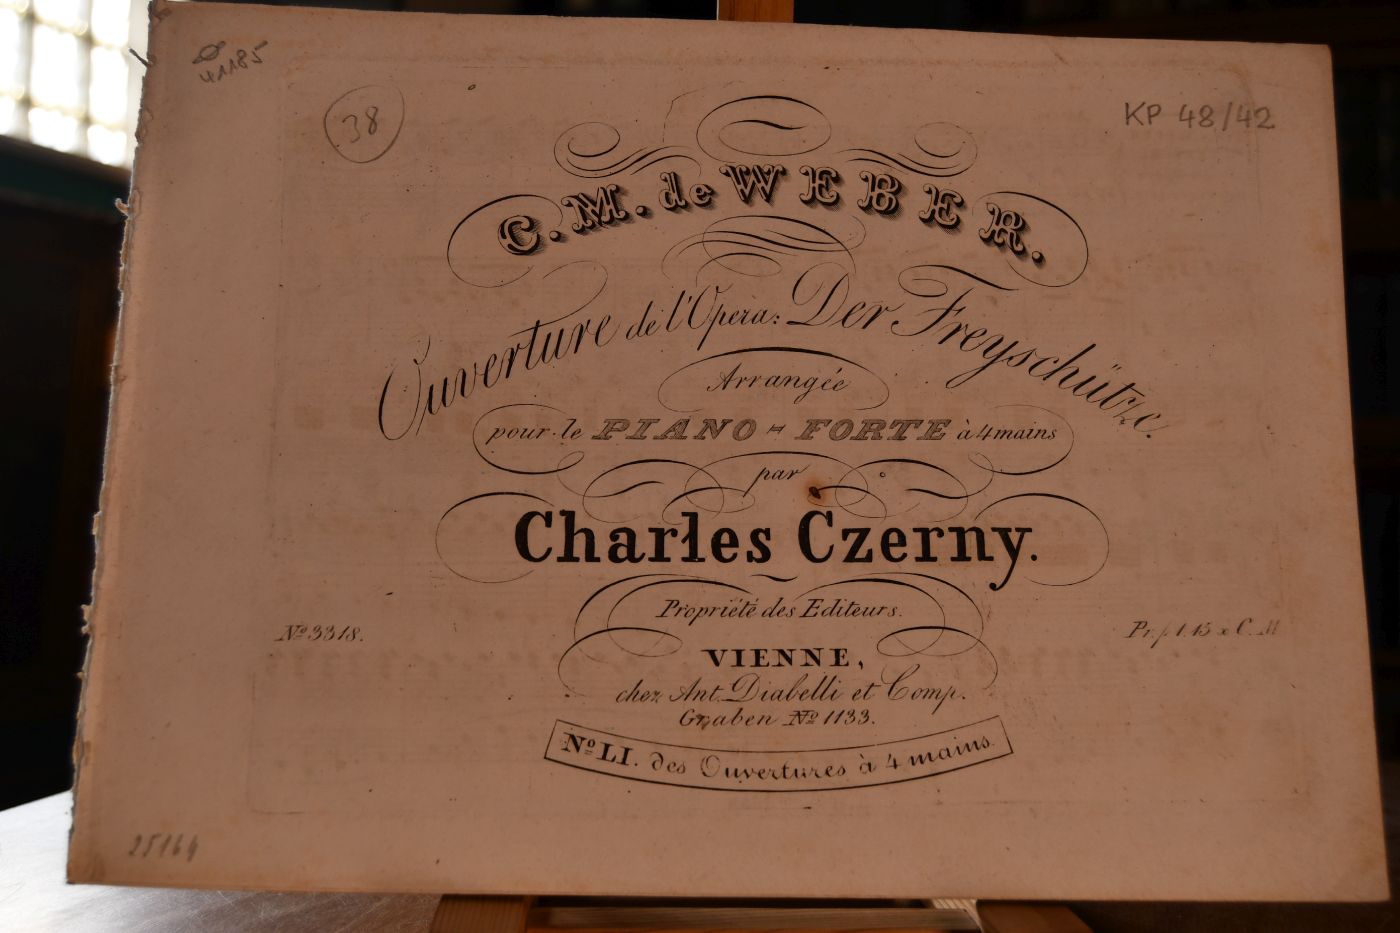 41185
38
KP 48/42
C. M. de WEBER.
Ouverture de l'Opera: Der Freyschütze.
Arrangée
pour le PIANO-FORTE à 4 mains
par
Charles Czerny.
Propriété des Editeurs.
No. 3318.
Pr. f. 1.15 x C. M
VIENNE,
chez Ant. Diabelli et Comp.
Graben No. 1133.
No. LI. des Ouvertures à 4 mains.
25164